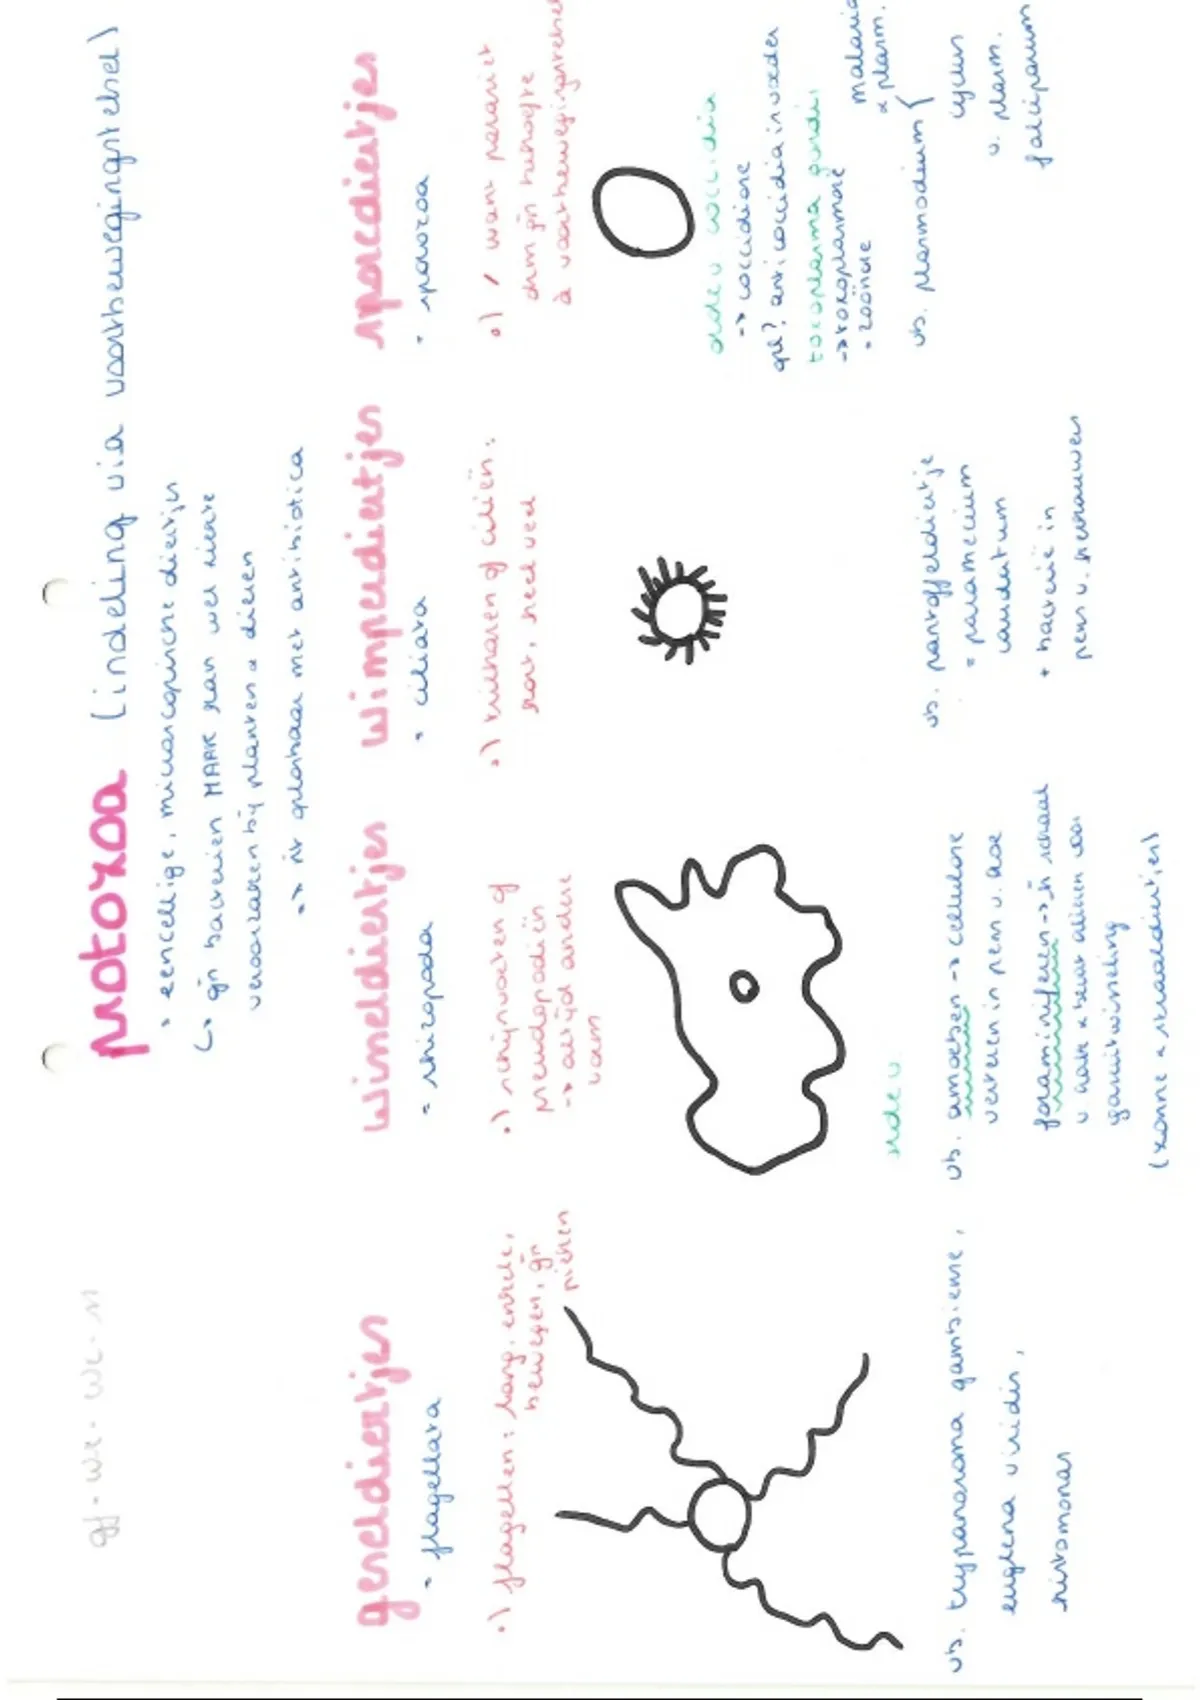 gl - we - we - n
protozoa (indeling via voortbewegingstelsel)
• eencellige, microscopische diertjes
↳ gn bacterien MAAR kan wel ziekte
veroorzaken bij planten & dieren
→ nt oplosbaar met antibiotica
geseldiertjes
= flagellata
•) flagellen: lang, enkele,
bewegen, gn
pieken
vb. trypanosoma gambiense,
euglena viridis,
histomonas
wimeldiertjes
= rhizopoda
•) schijnvoeten of
pseudopodiën
→ altijd andere
vorm
orde v
vb. amoeben → cellulose
verteren in pens v. koe
foraminiferen → h schaal
v kalk & bevat alleen voor
gasuitwisseling
(zonne & straaldiertjes)
wimperdiertjes
= ciliata
•) trilharen of ciliën:
kort, heel veel
vb. pantoffeldiertje
= paramecium
caudatum
+ bacterie in
pens v. herkauwers
sporediertjes
= sporozoa
•) / want parasiet
dus gn behoefte
à voortbewegingstelsel
orde v coccidia
→ coccidiose
opl? anticoccidia in voeder
toxoplasma gondii
→ toxoplasmose
= zoönose
vb. plasmodium {
malaria
& plasm.
cyclus
v. plasm.
falciparum